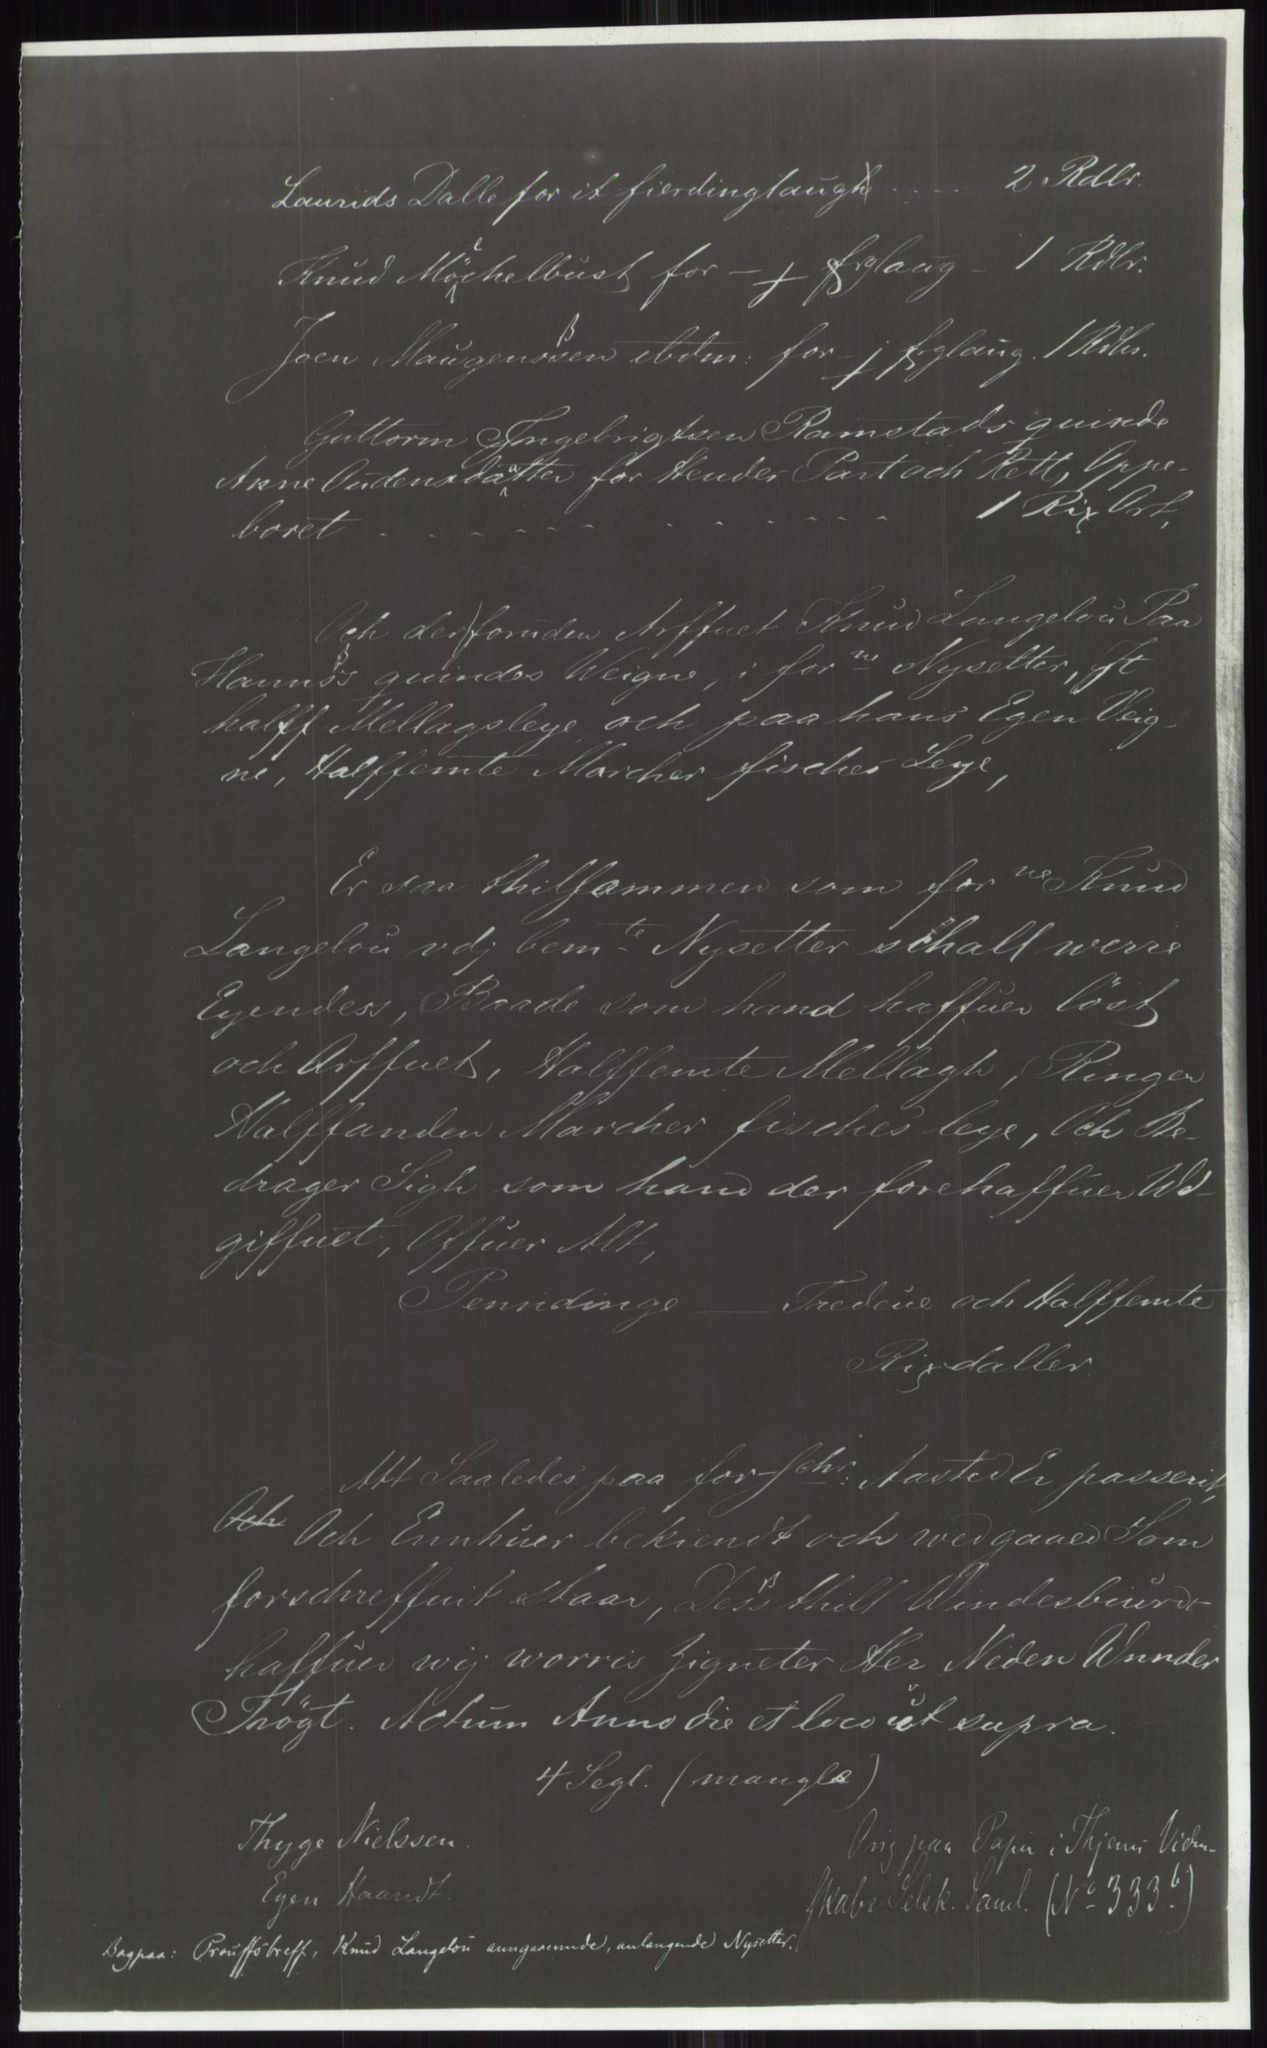 Laurids Dalle for it fierdinglaugh .... 2 Rdlr.
Knud Möchelbust for — ½ frglaug — 1 Rdlr.
Joen Maugensßen ibdm: for — ½ frglaug. 1 Rdlr.
Guttorm Jngebrigtsen Ramstads quinde
Anne Oudensdaatter for Hendes Part och Rett, Oppe-
boret . . . . . . . . . . . 1 Rix Ort,
Och der foruden Arffuet Knud Langelou Paa
Hanns quindes Weigne, i for ne Nysetter, Jt
halff Mellagsleye, och paa hans Egen Veig-
ne, Halffemte Marcher fisches Leye,
Er saa thilsammen som for ne Knud
Langelou vdj bem te Nysetter schall werre
Eyendess, Baade som hand haffuer löst
och Arffuet, Halffemte Mellagh, Ringer
Halffanden Marcher fisches leye, Och Be-
drager Sigh som hand der forehaffuer Wd-
giffuet, Offuer Alt,
Penndinge — Tredeue och Halffemte
Rixdaller.
Att Saaledes paa for schr: Aasted Er passerit,
Och Och Ennhuer bekiendt och wedgaaed Som
forschreffuit staar, Deß thill Windesbiurd
haffuer wij worris Zigneter Her Neden Wnnder
Trögt. Actum Anno die et loco ut supra.
4 Segl. (mangle)
Thyge Nielssen.
Egen Haandt.
Orig paa Papir i Thjems Viden-
skabs Selsk. Saml. (No 333 b.)
Bagpaa: Prouffsbreff, Knud Langelou anngaaennde, anlangende Nysetter.